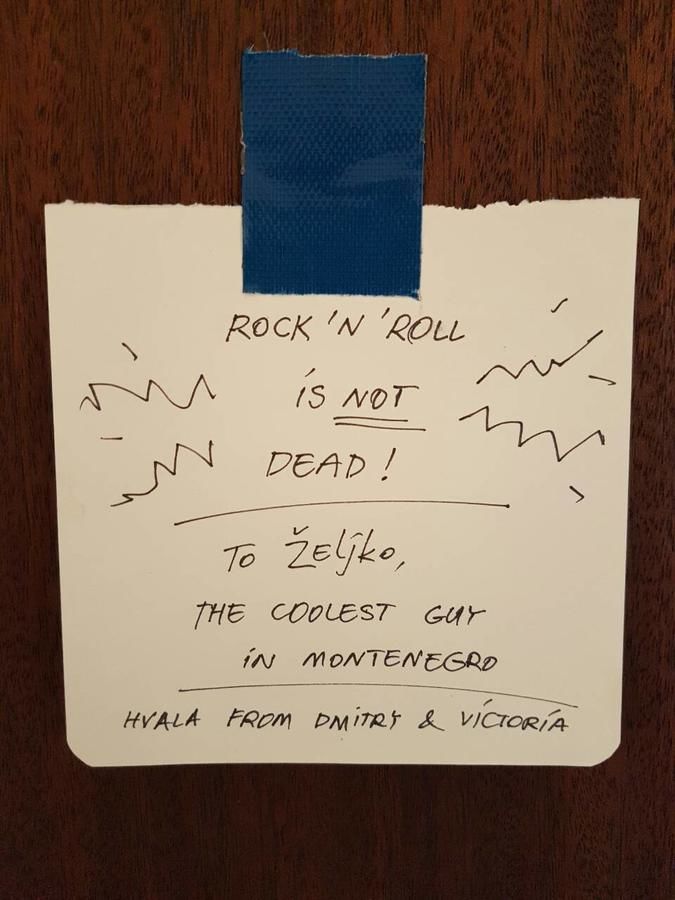 ROCK 'N 'ROLL
iS NOT
DEAD!
To Željko,
THE COOLEST GUY
iN MONTENEGRO
HVALA FROM DMiTRY & ViCTORiA